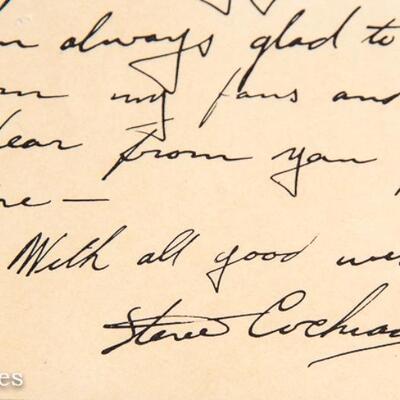 always glad to
my fans and
hear from you
With all good
Steve Cochran
es